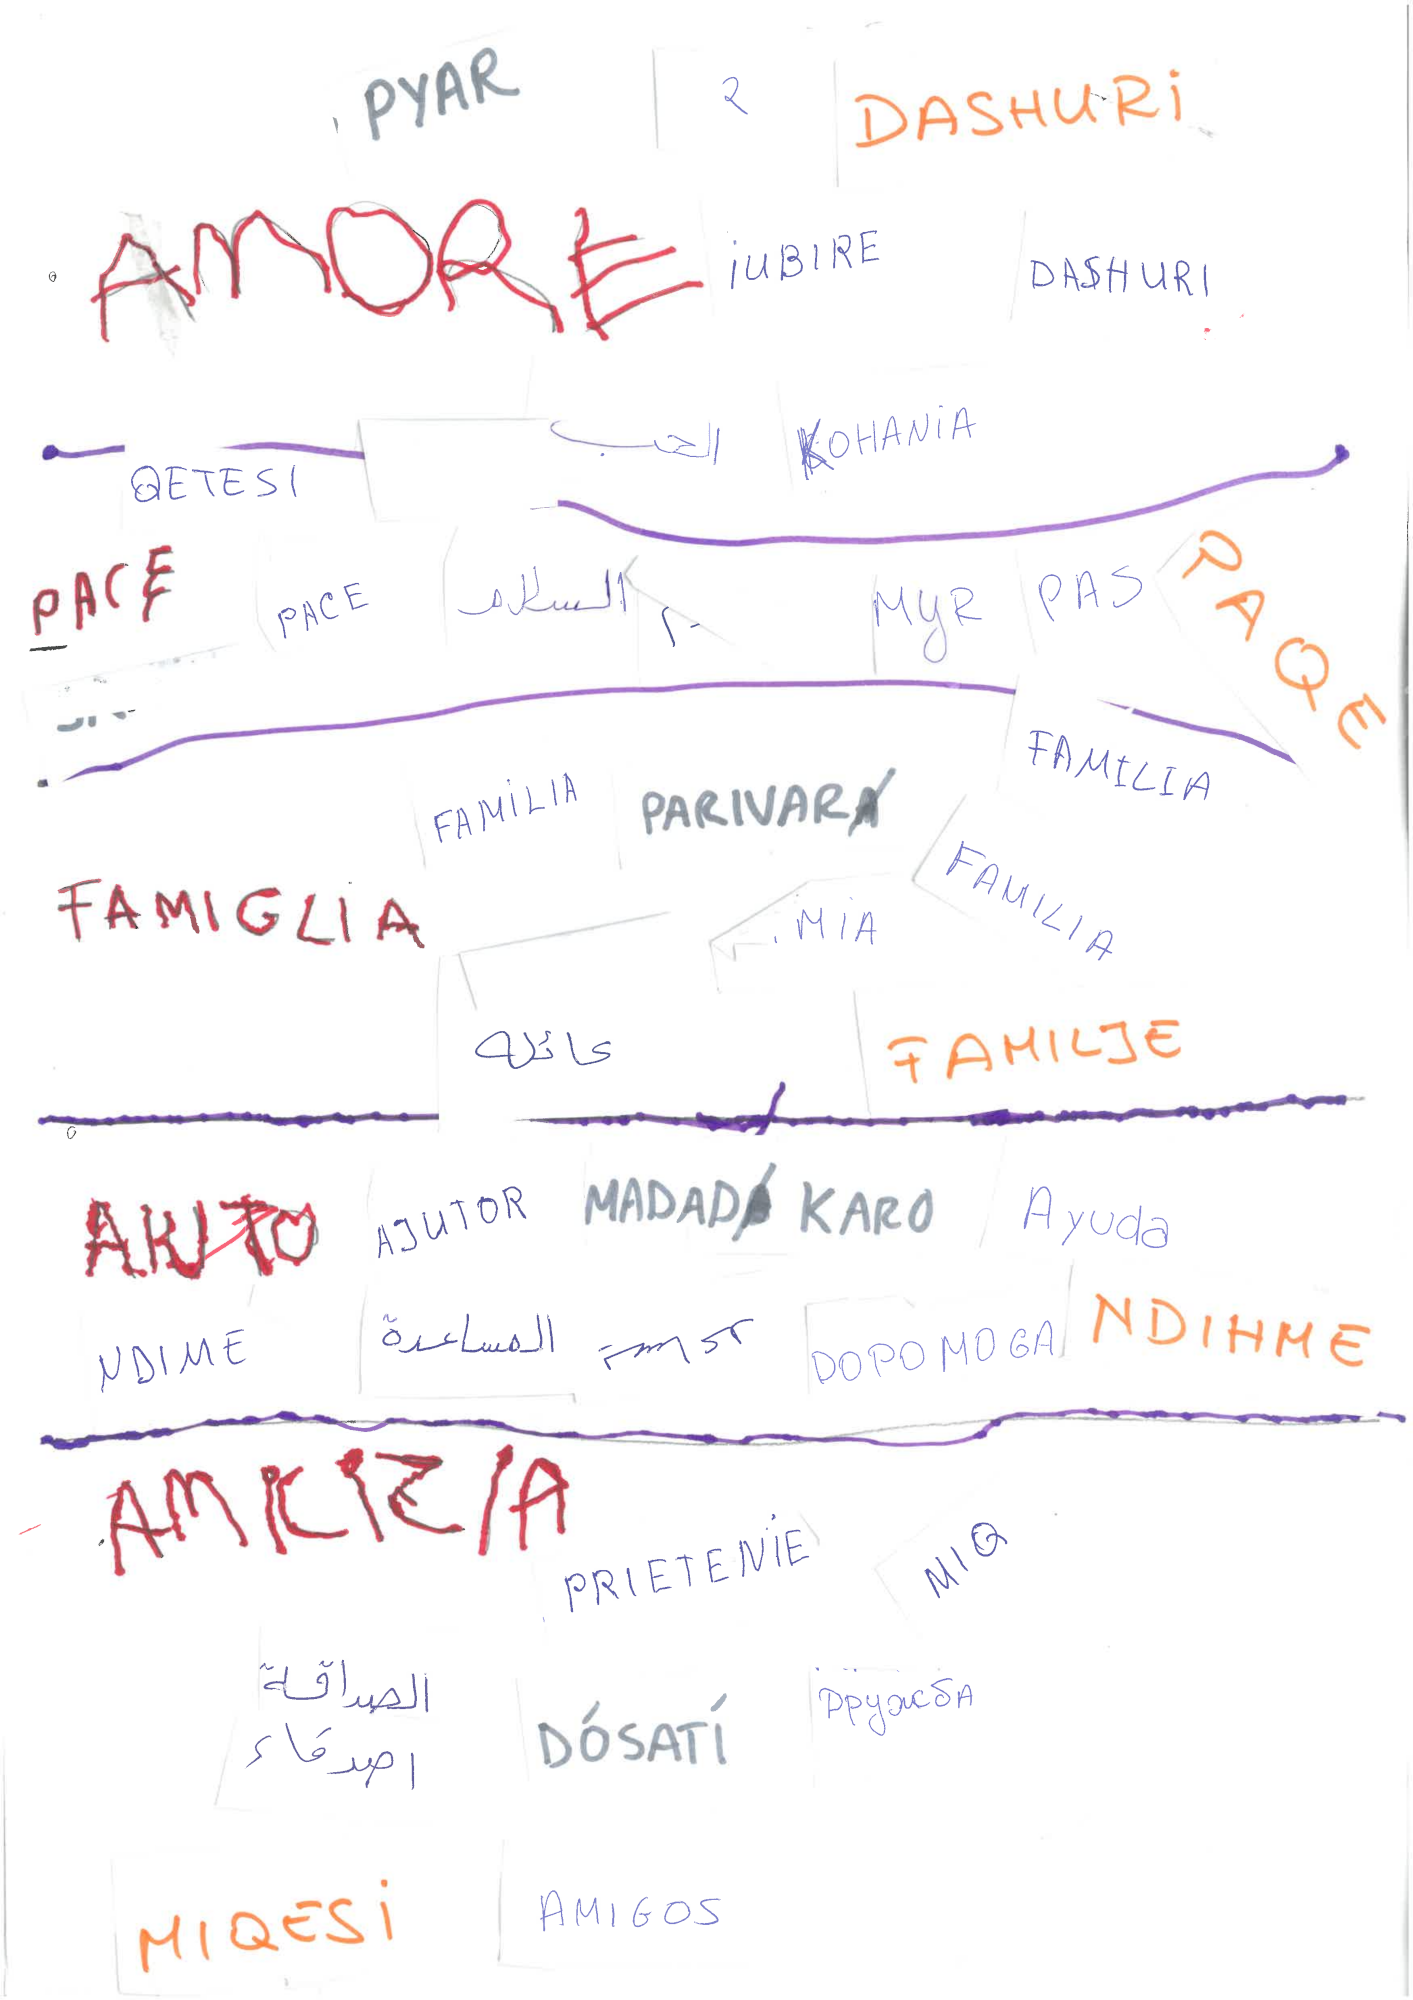 PYAR DASHURI
AMORE IUBIRE DASHURI
الحب KOHANIA
QETESI
PACE PACE السلام MYR PAS PAQE
FAMILIA PARIVAR FAMILIA
FAMIGLIA MIA FAMILIA
عائله FAMILJE
AIUTO AJUTOR MADAD KARO Ayuda
NDIME المساعدة DOPOMOGA NDIHME
AMICIZIA
PRIETENIE MIQ
الصداقة
اصدقاء DÓSATÍ Дружба
MIQESI AMIGOS